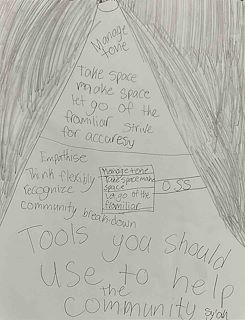 Manage
tone
take space
make space
let go of the
framiliar strive
for accuresy
Empathise
Think flexibly
recognize
community breakdown
Manage tone
Take space make
space
let go of the
framiliar
Tools you should
use to help
the
community